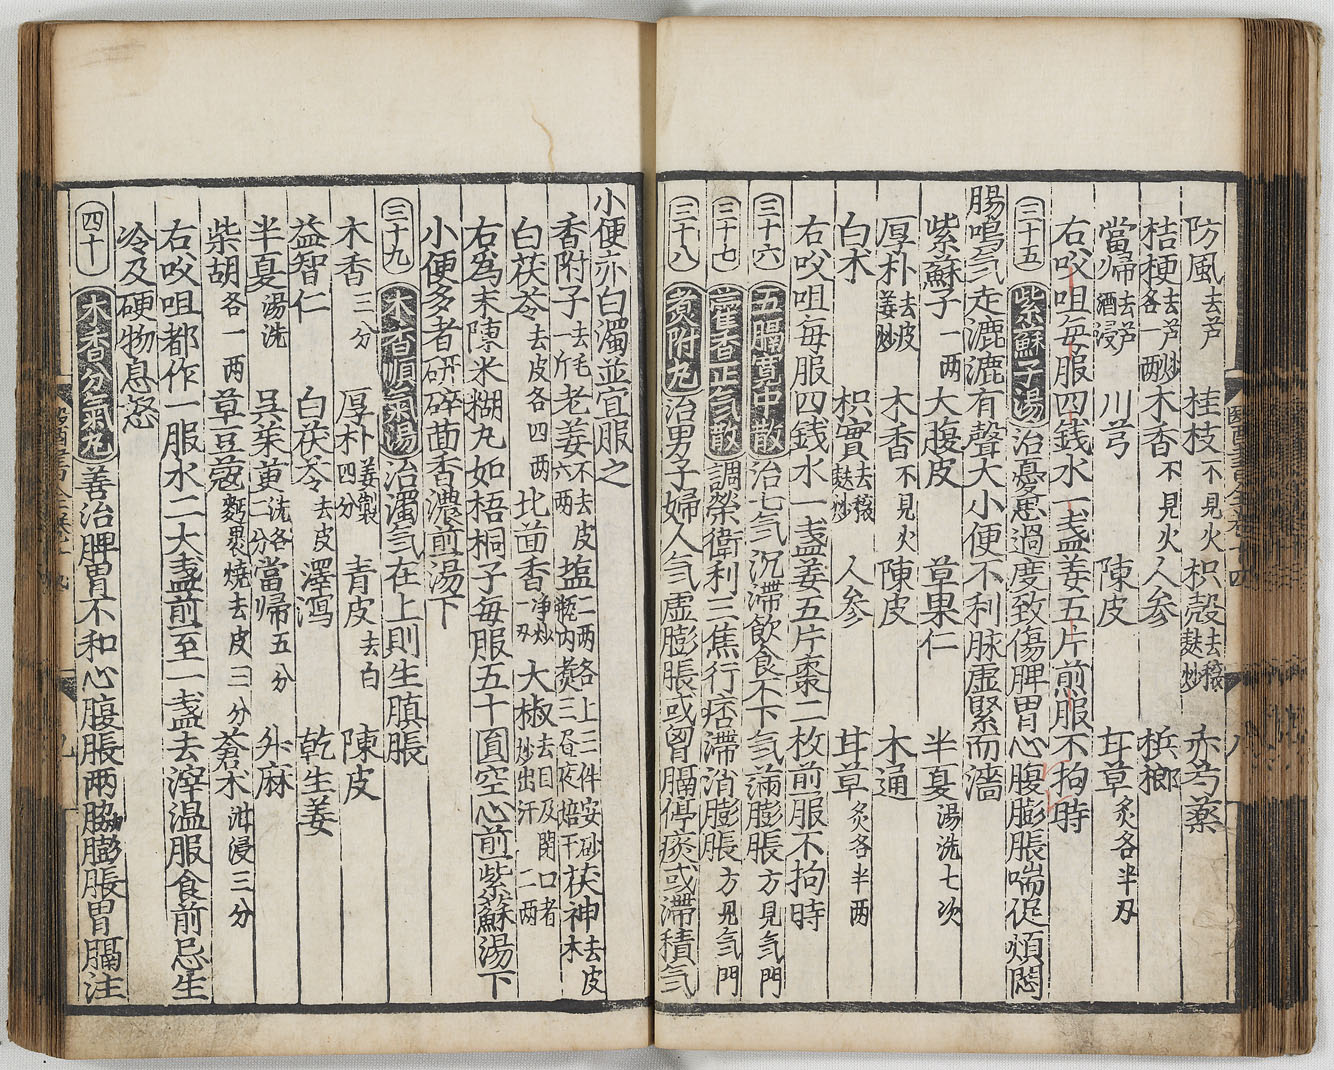 防風去芦 桂枝不見火 枳殻去穰麩炒 赤芍薬
桔梗去芦炒各一两 木香不見火 人参 梹榔
當帰去芦酒浸 川芎 陳皮 甘草炙各半刄
右㕮咀每服四銭水一盞姜五片煎服不拘時
三十五 紫蘇子湯 治憂患過度致傷脾胃心腹膨脹喘促煩悶
腸鳴气走漉漉有聲大小便不利脉虚緊而濇
紫蘇子一两 大腹皮 草果仁 半夏湯洗七次
厚朴去皮姜炒 木香不見火 陳皮 木通
白术 枳實去穰麩炒 人参 甘草炙各半两
右㕮咀每服四銭水一盞姜五片棗二枚前服不拘時
三十六 五膈寛中散 治七气沉滞飲食不下气満膨脹方見气門
三十七 藿香正气散 調榮衛利三焦行痞滞消膨脹方見气門
三十八 煮附丸 治男子婦人气虚膨脹或胷膈停痰或滞積气
小便亦白濁並宜服之
香附子一斤去毛 老姜不去皮六两 塩二两各上二件安砂瓶内煑三昼夜焙干 茯神去皮木
白茯苓去皮各四两 北茴香净炒一刄 大椒去目及閉口者炒出汗二两
右為末陳米糊丸如梧桐子每服五十圓空心前紫蘇湯下
小便多者研碎茴香濃煎湯下
三十九 木香順氣湯 治濁气在上則生䐜脹
木香三分 厚朴姜製四分 青皮去白 陳皮
益智仁 白茯苓去皮 澤瀉 乾生姜
半夏湯洗 呉茱萸洗各二分 當帰五分 升麻
柴胡各一两 草豆蔲麪裹燒去皮三分 蒼术泔浸三分
右㕮咀都作一服水二大盞前至一盞去滓温服食前忌生
冷及硬物息怒
四十 木香分氣丸 善治脾胃不和心腹脹两脇膨脹胃膈注